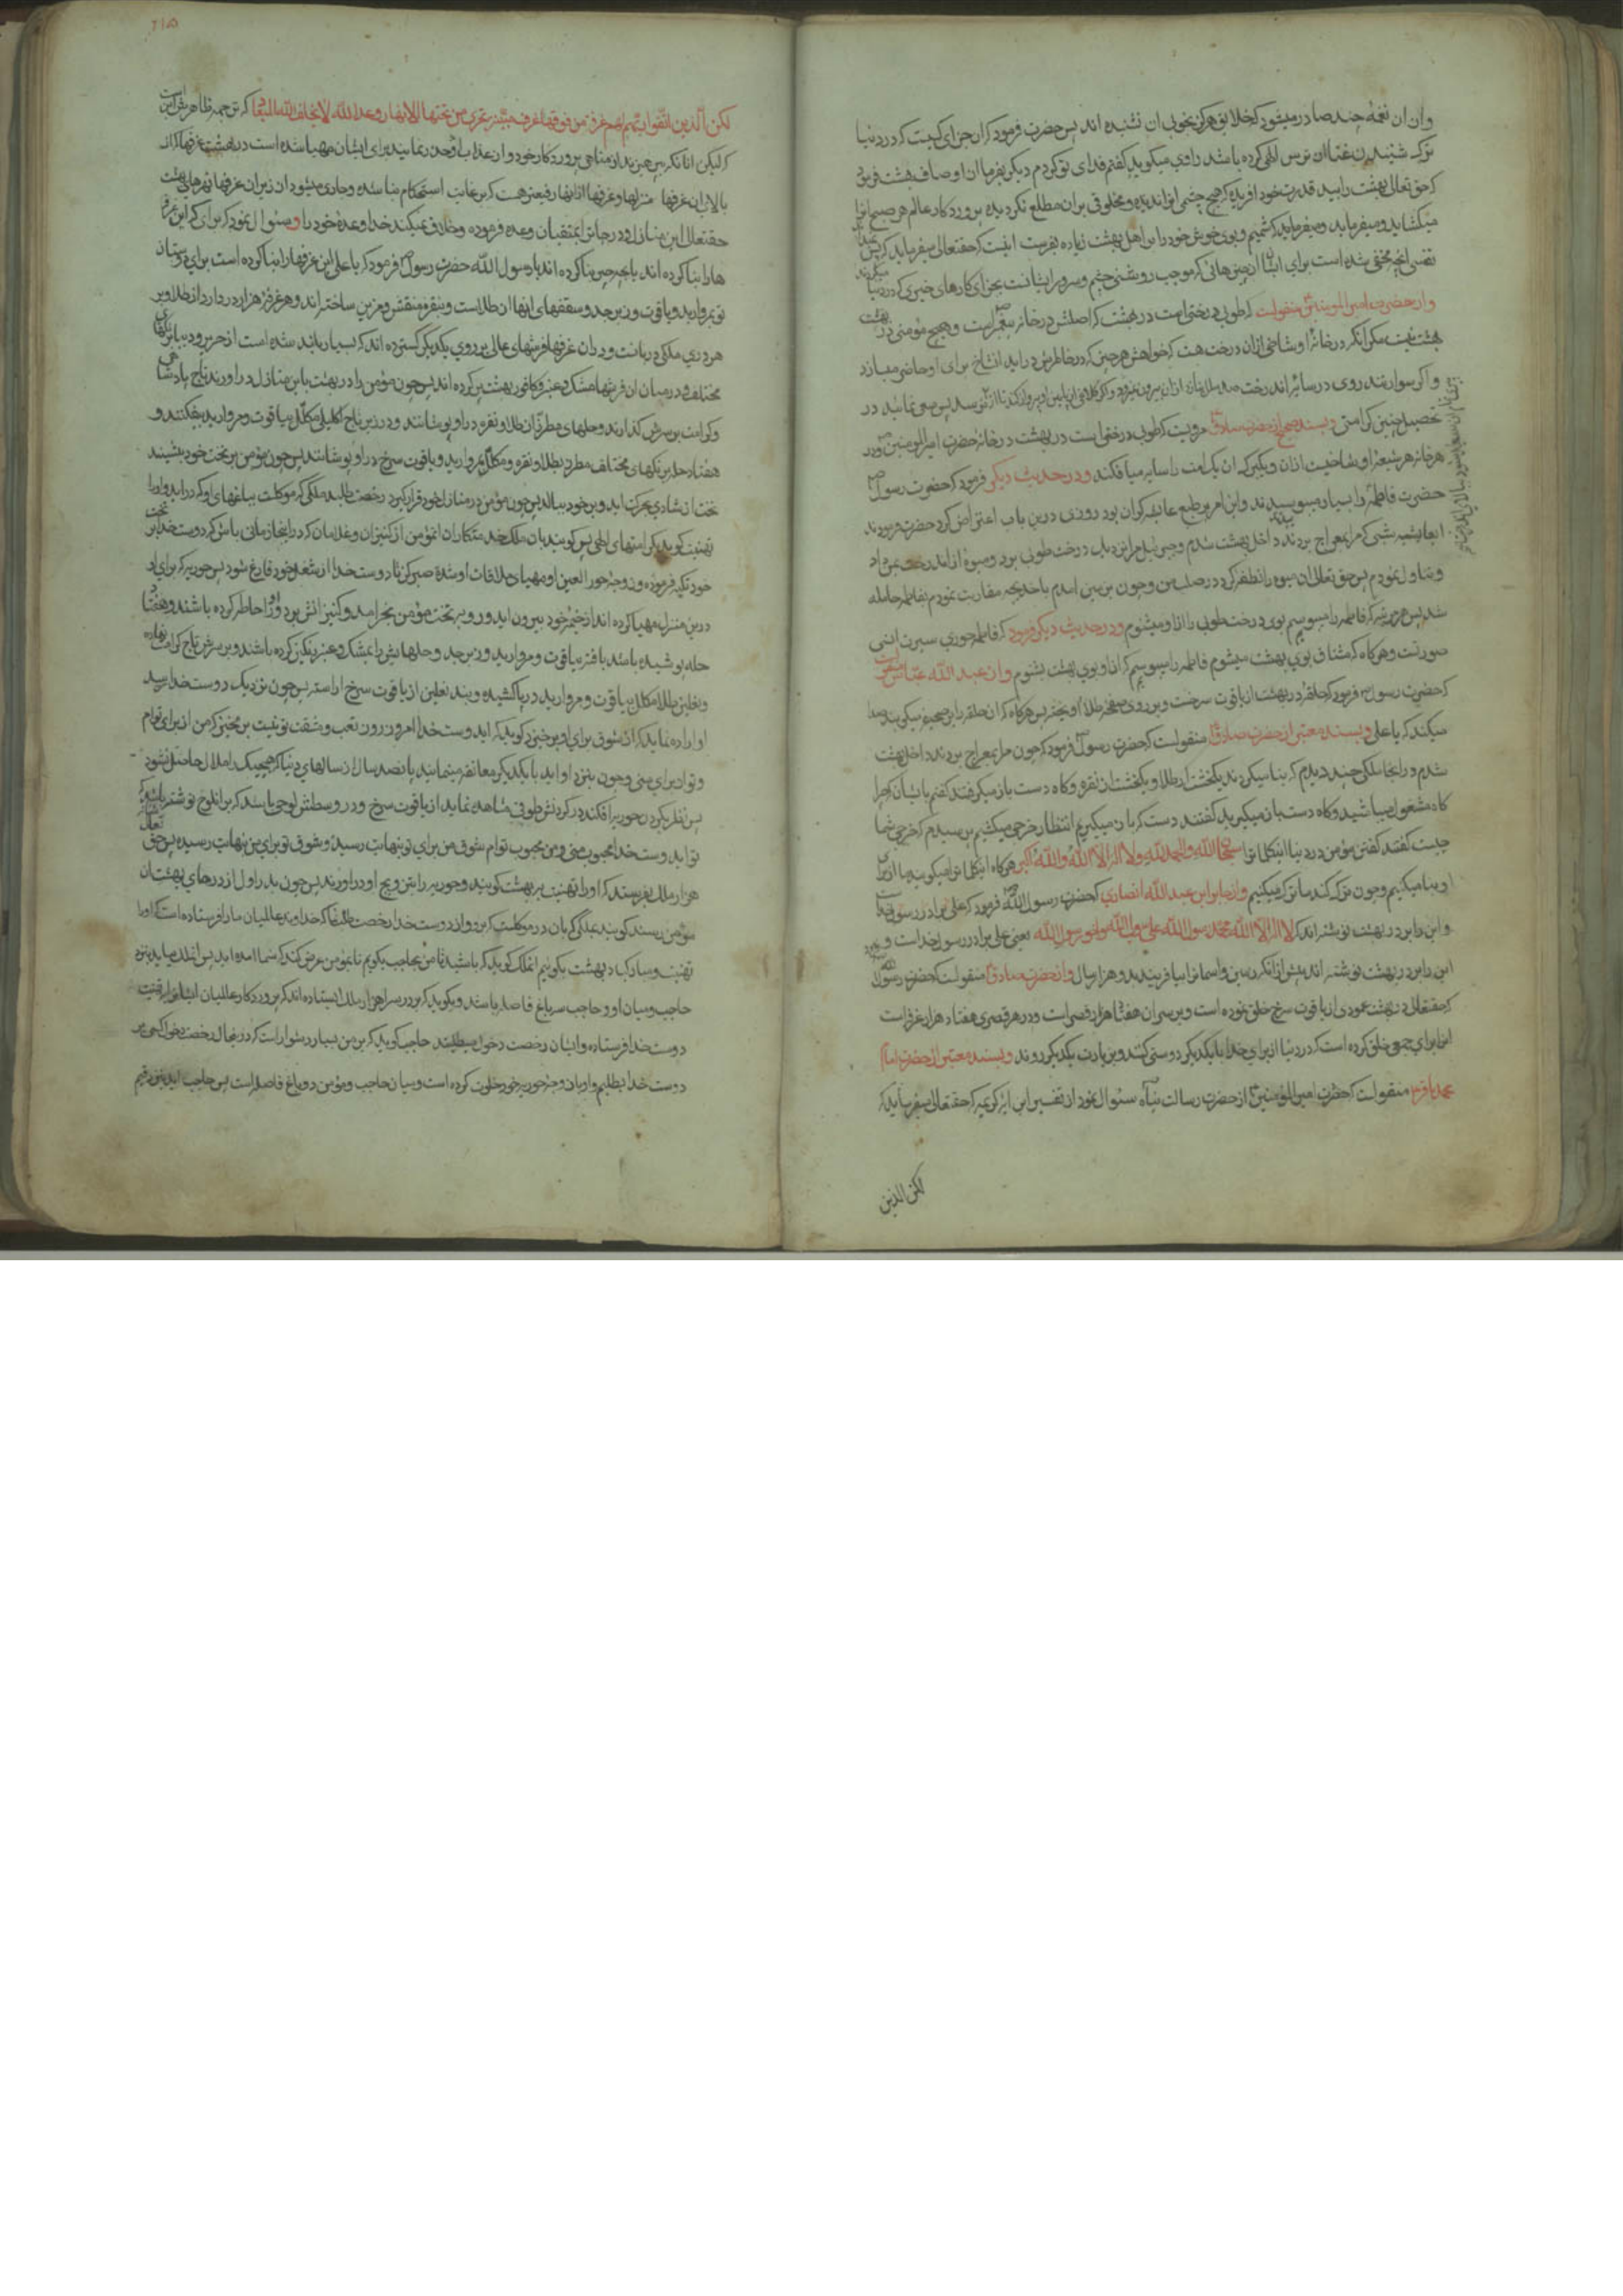 وازان نغمهٔ چند صادر میشود که خلایق هرگز بخوبی ان نشنیده اند پس حضرت فرمود که ان جزای کسیت که در دنیا
ترک شنیدن غنا از ترس الهی کرده باشد راوی میکوید که کفتم فدای تو کردم دیکر بفرما از اوصاف بهشت فرمود
که حق تعالی بهشت را بید قدرت خود افریده که هیچ چشمی انرا ندیده و مخلوقی بران مطلع نکردیده پروردکار عالم هر صبح انرا
میکشاید و میفرماید که شمیم و بوی خوش خود را بر اهل بهشت زیاده بفرست اینست که حقتعالی میفرماید که پس نمیداند
نفسی انچه مخفی شده است برای ایشان از چیزهائی که موجب روشنی چشم و سرور ایشانست بجزای کارهای خیری که در دنیا میکردند
واز حضرت امیر المومنین منقولست که طوبی درختی است در بهشت که اصلش در خانه پیغمبر است و هیچ مؤمنی در بهشت
نیست مکر انکه در خانهٔ او شاخی ازان درخت هست که خواهش هر چیز که در خاطرش دراید انشاخ برای او حاضر میسازد
واکر سوار تند روی در سایه اند رخت صد سال بتازد ازان بیرون نمیرود و اکر کلاغی از پایین او پرواز کند تا از
تحصیل چنین کرامتی وبسند صحیح از حضرت صادق مرویست که طوبی درختی است در بهشت در خانهٔ حضرت امیر المومنین و در
هر خانه هر شیعهٔ او شاخیست ازان و یکبرک ان یک امت را سایه میافکند ودر حدیث دیکر فرمود که حضرت رسول
حضرت فاطمه را بسیار میبوسیدند و این امر بر طبع عایشه کران بود روزی درین باب اعتراض کرد حضرت فرمودند
ای عایشه شبی که مرا بمعراج بردند داخل بهشت شدم و جبرئیل مرا نزدیک درخت طوبی برد و میوهٔ ازان درخت بمن داد
وتناول نمودم پس حق تعالی ان میوه را نطفه کرد در صلب من وچون بزمین امدم با خدیجه مقاربت نمودم بفاطمه حامله
شد پس هر مرتبه که فاطمه را میبوسم بوی درخت طوبی را ازو میشنوم ودر حدیث دیکر فرمود که فاطمه حوری سیرت انسی
صورتست وهرکاه که مشتاق بوی بهشت میشوم فاطمه را میبوسم که ازاو بوی بهشت بشنوم واز عبد الله عباس منقولست
که حضرت رسول فرمود که حلقه در بهشت از یاقوت سرخست و بر روی صفحه طلا اویخته پس هرکاه که ان حلقه را بر صحیفه میکوبند صدا
میکند که یا علی وبسند معتبر از حضرت صادق منقولست که حضرت رسول فرمود که چون مرا بمعراج بردند داخل بهشت
شدم ودر انجا ملکی چند دیدم که بنا میکردند یکخشت از طلا و یکخشت از نقره وکاه دست باز میکرفتند کفتم بایشان که چرا
کاه مشغول میباشید وکاه دست باز میکیرید کفتند دست که باز میکیریم انتظار خرجی میکشیم پرسیدم که خرجی شما
چیست کفتند کفتن مؤمن در دنیا اینکلمات را سبحان الله والحمد لله ولا اله الا الله والله اکبر هرکاه اینکلمات را میکویند ما از برای
او بنا میکنیم وچون ترک کند ما ترک میکنیم واز جابر ابن عبد الله انصاری که حضرت رسول الله فرمود که علی برادر رسول خدا
و این را بر در بهشت نوشته اند که لا اله الا الله محمد رسول الله علی اخو رسول الله یعنی علی برادر رسول خداست و
این را بر در بهشت نوشته اند پیش ازانکه زمین واسمانرا بیافریند بدو هزار سال واز حضرت صادق منقولست که حضرت رسول
که حقتعالی در بهشت عمودی از یاقوت سرخ خلق نموده است و بر سر ان هفتاد هزار قصر است و در هر قصری هفتاد هزار غرفه است
انرا برای جمعی خلق کرده است که در دنیا از برای خدا با یکدیکر دوستی کنند و بزیارت یکدیکر روند وبسند معتبر از حضرت امام
محمد باقر منقولست که حضرت امیر المؤمنین از حضرت رسالت پناه سئوال نمود از تفسیر این ایه کریمه که حقتعالی میفرماید که
لکن الذین
۲۱۵
لکن الذین اتقوا ربهم لهم غرف من فوقها غرف مبنیة تجری من تحتها الانهار وعد الله لا یخلف الله المیعاد که ترجمه ظاهرش این است
که لیکن انانکه پرهیزند از مناهی پروردکار خود واز عذاب او حذر نمایند برای ایشان مهیا شده است در بهشت غرفها که از
بالای ان غرفها منزلها و غرفها ازانها رفیعتر هست که بر غایت استحکام بنا شده و جاری میشود از زیر ان غرفها نهرهای بهشت
حقتعالی این منازل و درجات را بمتقیان وعده فرموده وخلاف نمیکند خدا وعدهٔ خود را و سئوال نمود که برای که این غرفه
ها را بنا کرده اند یا بچه چیز بنا کرده اند یا رسول الله حضرت رسول فرمود که یا علی این غرفها را بنا کرده است برای دوستان
بمروارید و یاقوت و زبرجد و سقفهای انها از طلاست و بنقره منقش و مزین ساخته اند و هر غرفه هزار در دارد از طلا و بر
هر دری ملکی دربانست و دران غرفها فرشهای عالی بر روی یکدیکر کسترده اند که بسیار بلند شده است از حریر و دیبا برنکهای
مختلف و در میان ان فرشها مشک و عنبر و کافور بهشت پر کرده اند پس چون مؤمن را در بهشت باین منازل دراورند تاج پادشاهی
وکرامت بر سرش کذارند و حلهای مطرز از طلا و نقره دراو پوشانند و در زیر تاج اکلیلی مکلل بیاقوت و مروارید بیفکنند و
هفتاد حله برنکهای مختلف مطرز بطلا و نقره و مکلل بمروارید و یاقوت سرخ دراو پوشانند پس چون مؤمن بر تخت خود بنشیند
تخت از شادی بحرکت اید و بر خود ببالد پس چون مؤمن در منازل خود قرار کیرد رخصت طلبد ملکی که موکلست بباغهای او که دراید و اورا
تهنیت کوید بکرامتهای الهی پس کویند بان ملک خدمتکاران انمؤمن از کنیزان و غلامان که در اینجا زمانی باش که دوست خدا بر تخت
خود تکیه فرموده وزوجهٔ حور العین او مهیای ملاقات او شده صبر کن تا دوست خدا از شغل خود فارغ شود پس حوریه که برای او
درین منزل مهیا کرده اند از خیمهٔ خود بیرون اید و رو به تخت مؤمن بخرامد و کنیزانش بر دور او احاطه کرده باشند و هفتاد
حله پوشیده باشد بافته بیاقوت و مروارید و زبرجد و حلهایش را بمشک و عنبر رنکین کرده باشند و بر سرش تاج کرامت نهاده
ونعلین طلا مکلل بیاقوت و مروارید در پا کشیده و بند نعلین از یاقوت سرخ اراسته پس چون نزدیک دوست خدا رسد
او اراده نماید که از شوق برای او برخیزد کوید که ای دوست خدا امروز روز تعب و مشقت تو نیست برمخیز که من از برای توام
وتو از برای منی وچون بنزد او اید با یکدیکر معانقه مینمایند پانصد سال از سالهای دنیا که هیچیک را ملال حاصل نشود
پس نظر بکردن حوریه افکند در کردنش طوقی مشاهده نماید از یاقوت سرخ ودر وسطش لوحی باشد که بر انلوح نوشته باشد که
تو ای دوست خدا محبوب منی ومن محبوب توام شوق من برای تو بنهایت رسیده وشوق تو برای من بنهایت رسیده پس حق تعالی
هزار ملک بفرستد که اورا تهنیت به بهشت کویند وحوریه را بتزویج او دراورند پس چون بدر اول از درهای بهشت ان
مؤمن رسند کویند بملکی که بان در موکلست که برو واز دوست خدا رخصت طلب نما که خداوند عالمیان مارا فرستاده است که اورا
تهنیت و مبارکباد بهشت بکوئیم انملک کوید که باشید تا من بحاجب بکویم تا بمؤمن عرض کند که شما امده اید پس انملک میاید بنزد
حاجب ومیان او وحاجب سه باغ فاصله باشد و بکوید که بر در سرا هزار ملک ایستاده اند که پروردکار عالمیان ایشانرا بتهنیت
دوست خدا فرستاده وایشان رخصت دخول میطلبند حاجب کوید که بر من بسیار دشوار است که درینحال رخصت دخول کسی بر
دوست خدا بطلبم واو بازوجهٔ حوریه خود خلوت کرده است ومیان حاجب ومؤمن دو باغ فاصله است پس حاجب اید بنزد قیم